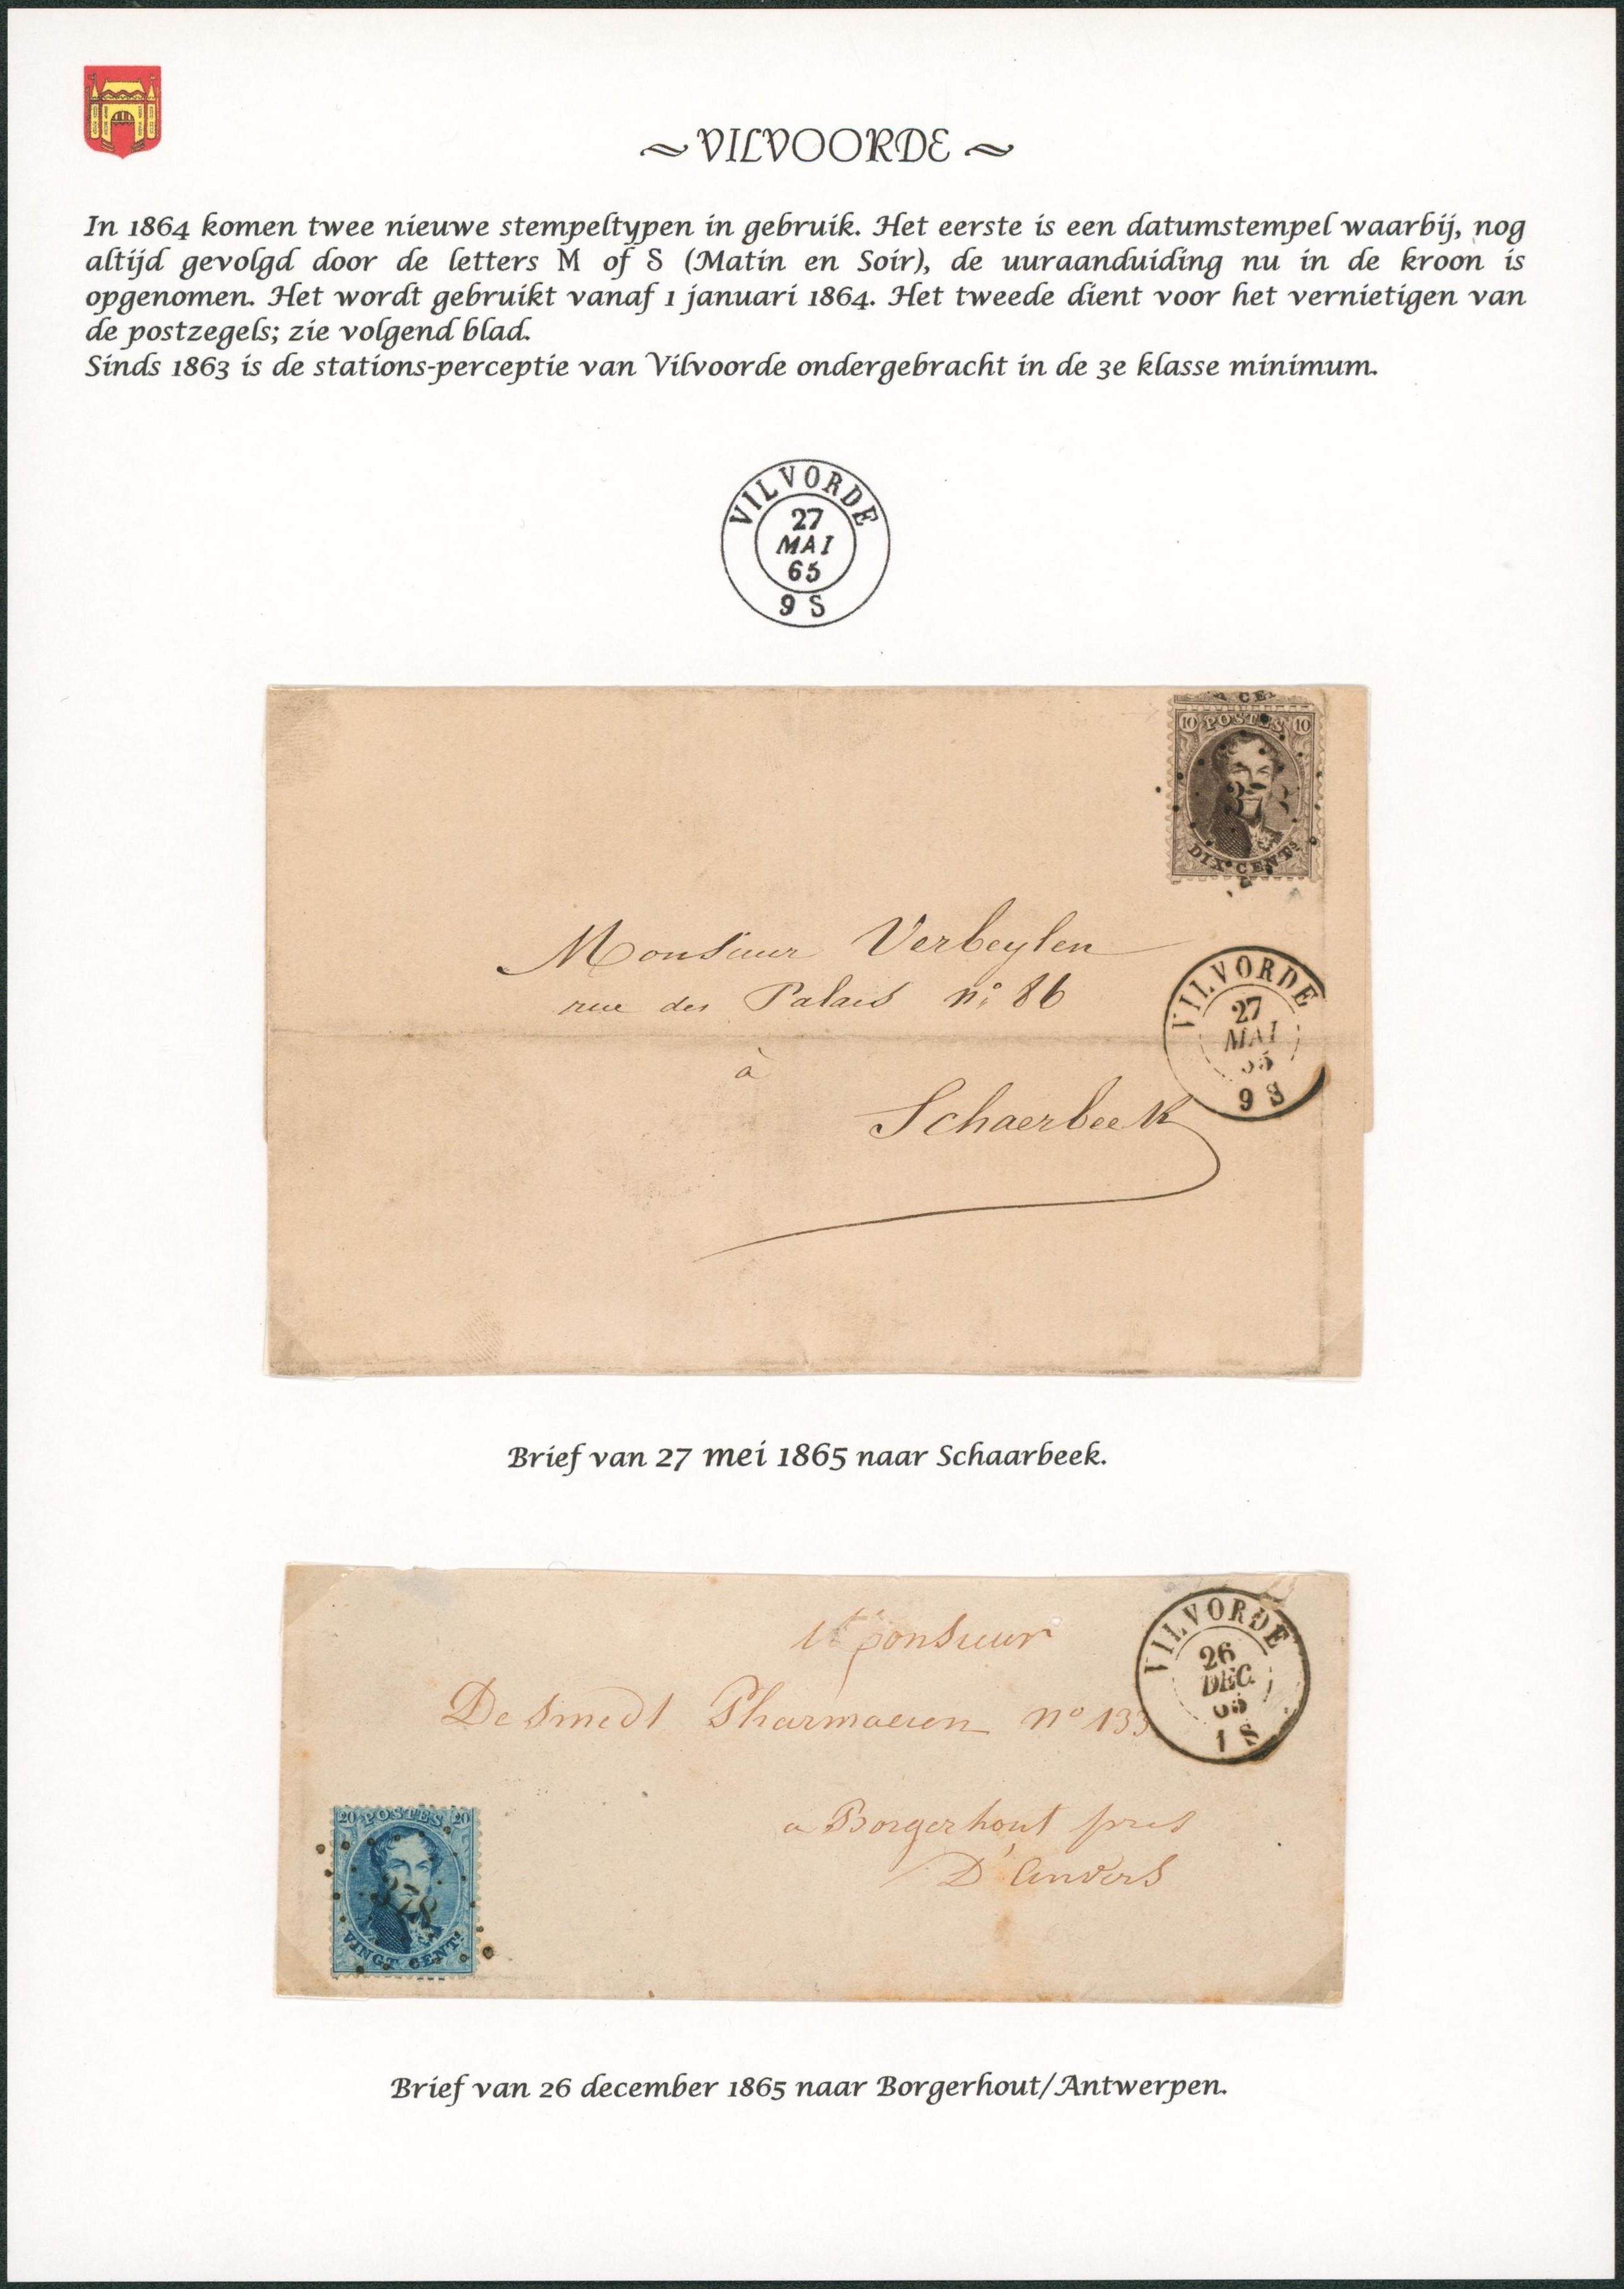 VILVOORDE
In 1864 komen twee nieuwe stempeltypen in gebruik. Het eerste is een datumstempel waarbij, nog
altijd gevolgd door de letters M of S (Matin en Soir), de uuraanduiding nu in de kroon is
opgenomen. Het wordt gebruikt vanaf 1 januari 1864. Het tweede dient voor het vernietigen van
de postzegels; zie volgend blad.
Sinds 1863 is de stations-perceptie van Vilvoorde ondergebracht in de 3e klasse minimum.
VILVORDE
27
MAI
65
9 S
10 POSTES 10
378
DIX CENTS
Monsieur Verbeylen
rue des Palais no 86
à
Schaerbeek
VILVORDE
27
MAI
65
9 S
Brief van 27 mei 1865 naar Schaarbeek.
Monsieur
De Smedt Pharmacien no 133
a Borgerhout pres
D'Anvers
VILVORDE
26
DEC
65
1 S
20 POSTES 20
378
VINGT CENTS
Brief van 26 december 1865 naar Borgerhout/Antwerpen.